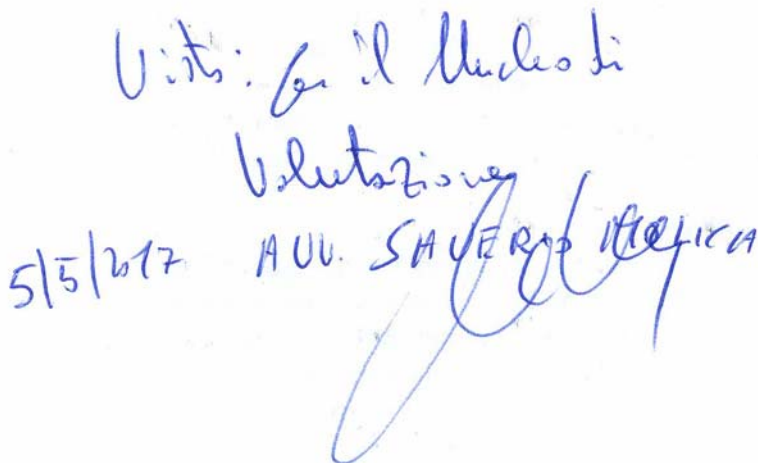 Visto: per il Nucleo di
Valutazione
5/5/2017 AVV. SAVERIO MOLICA